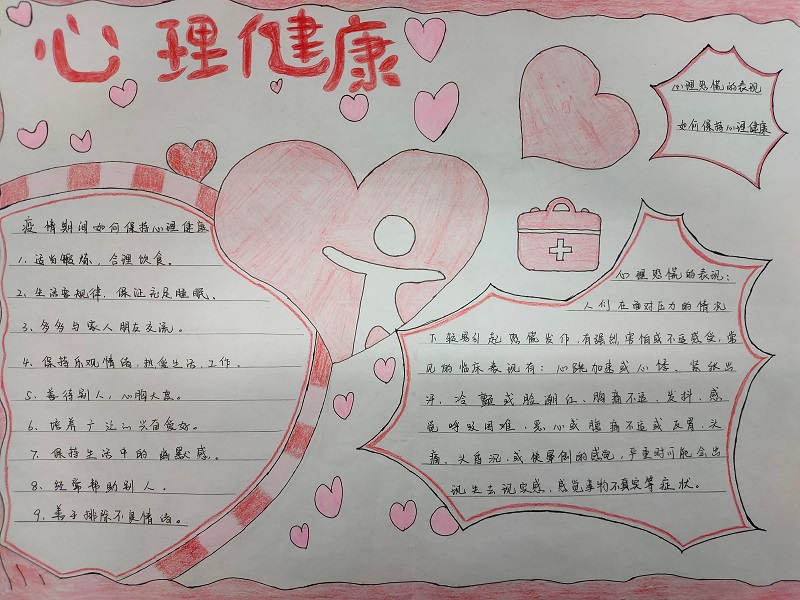 心理健康
心理恐慌的表现
如何保持心理健康
疫情期间如何保持心理健康
1. 适当锻炼，合理饮食。
2. 生活要规律，保证充足睡眠。
3. 多多与家人朋友交流。
4. 保持乐观情绪，热爱生活，工作。
5. 善待别人，心胸大度。
6. 培养广泛的兴奋爱好。
7. 保持生活中的幽默感。
8. 经常帮助别人。
9. 善于排除不良情绪。
心理恐慌的表现：
人们在面对压力的情况
下较易引起恐慌发作，有强烈害怕或不适感受，常
见的临床表现有：心跳加速或心悸、紧张出
汗、冷颤或脸潮红、胸痛不适、发抖、感
觉呼吸困难、恶心或腹痛不适或反胃、头
痛、头昏沉、或快晕倒的感觉，严重时可能会出
现失去现实感，感觉事物不真实等症状。